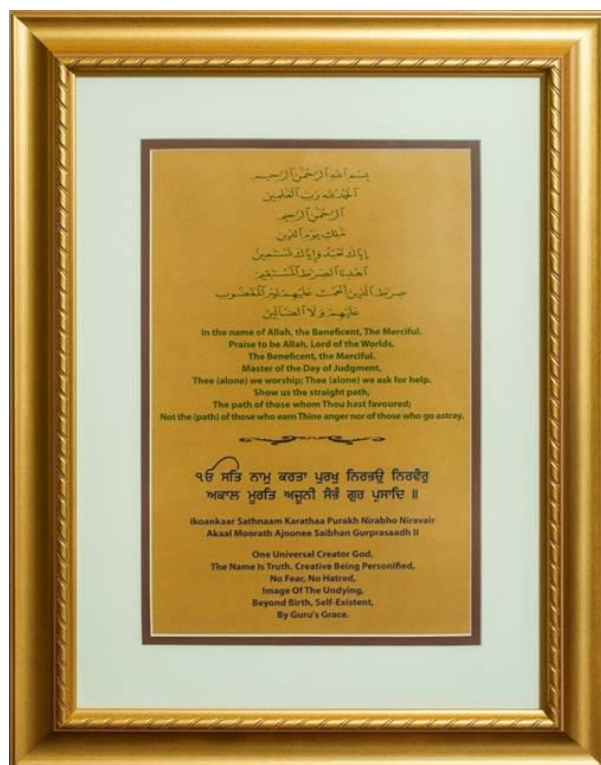 بِسْمِ ٱللَّهِ ٱلرَّحْمَٰنِ ٱلرَّحِيمِ
ٱلْحَمْدُ لِلَّهِ رَبِّ ٱلْعَٰلَمِينَ
ٱلرَّحْمَٰنِ ٱلرَّحِيمِ
مَٰلِكِ يَوْمِ ٱلدِّينِ
إِيَّاكَ نَعْبُدُ وَإِيَّاكَ نَسْتَعِينُ
ٱهْدِنَا ٱلصِّرَٰطَ ٱلْمُسْتَقِيمَ
صِرَٰطَ ٱلَّذِينَ أَنْعَمْتَ عَلَيْهِمْ غَيْرِ ٱلْمَغْضُوبِ
عَلَيْهِمْ وَلَا ٱلضَّآلِّينَ
In the name of Allah, the Beneficent, The Merciful.
Praise to be Allah, Lord of the Worlds,
The Beneficent, the Merciful.
Master of the Day of Judgment,
Thee (alone) we worship; Thee (alone) we ask for help.
Show us the straight path,
The path of those whom Thou hast favoured;
Not the (path) of those who earn Thine anger nor of those who go astray.
ੴ ਸਤਿ ਨਾਮੁ ਕਰਤਾ ਪੁਰਖੁ ਨਿਰਭਉ ਨਿਰਵੈਰੁ
ਅਕਾਲ ਮੂਰਤਿ ਅਜੂਨੀ ਸੈਭੰ ਗੁਰ ਪ੍ਰਸਾਦਿ ॥
Ikoankaar Sathnaam Karathaa Purakh Nirabho Niravair
Akaal Moorath Ajoonee Saibhan Gurprasaadh II
One Universal Creator God,
The Name Is Truth. Creative Being Personified,
No Fear, No Hatred,
Image Of The Undying,
Beyond Birth, Self-Existent,
By Guru's Grace.